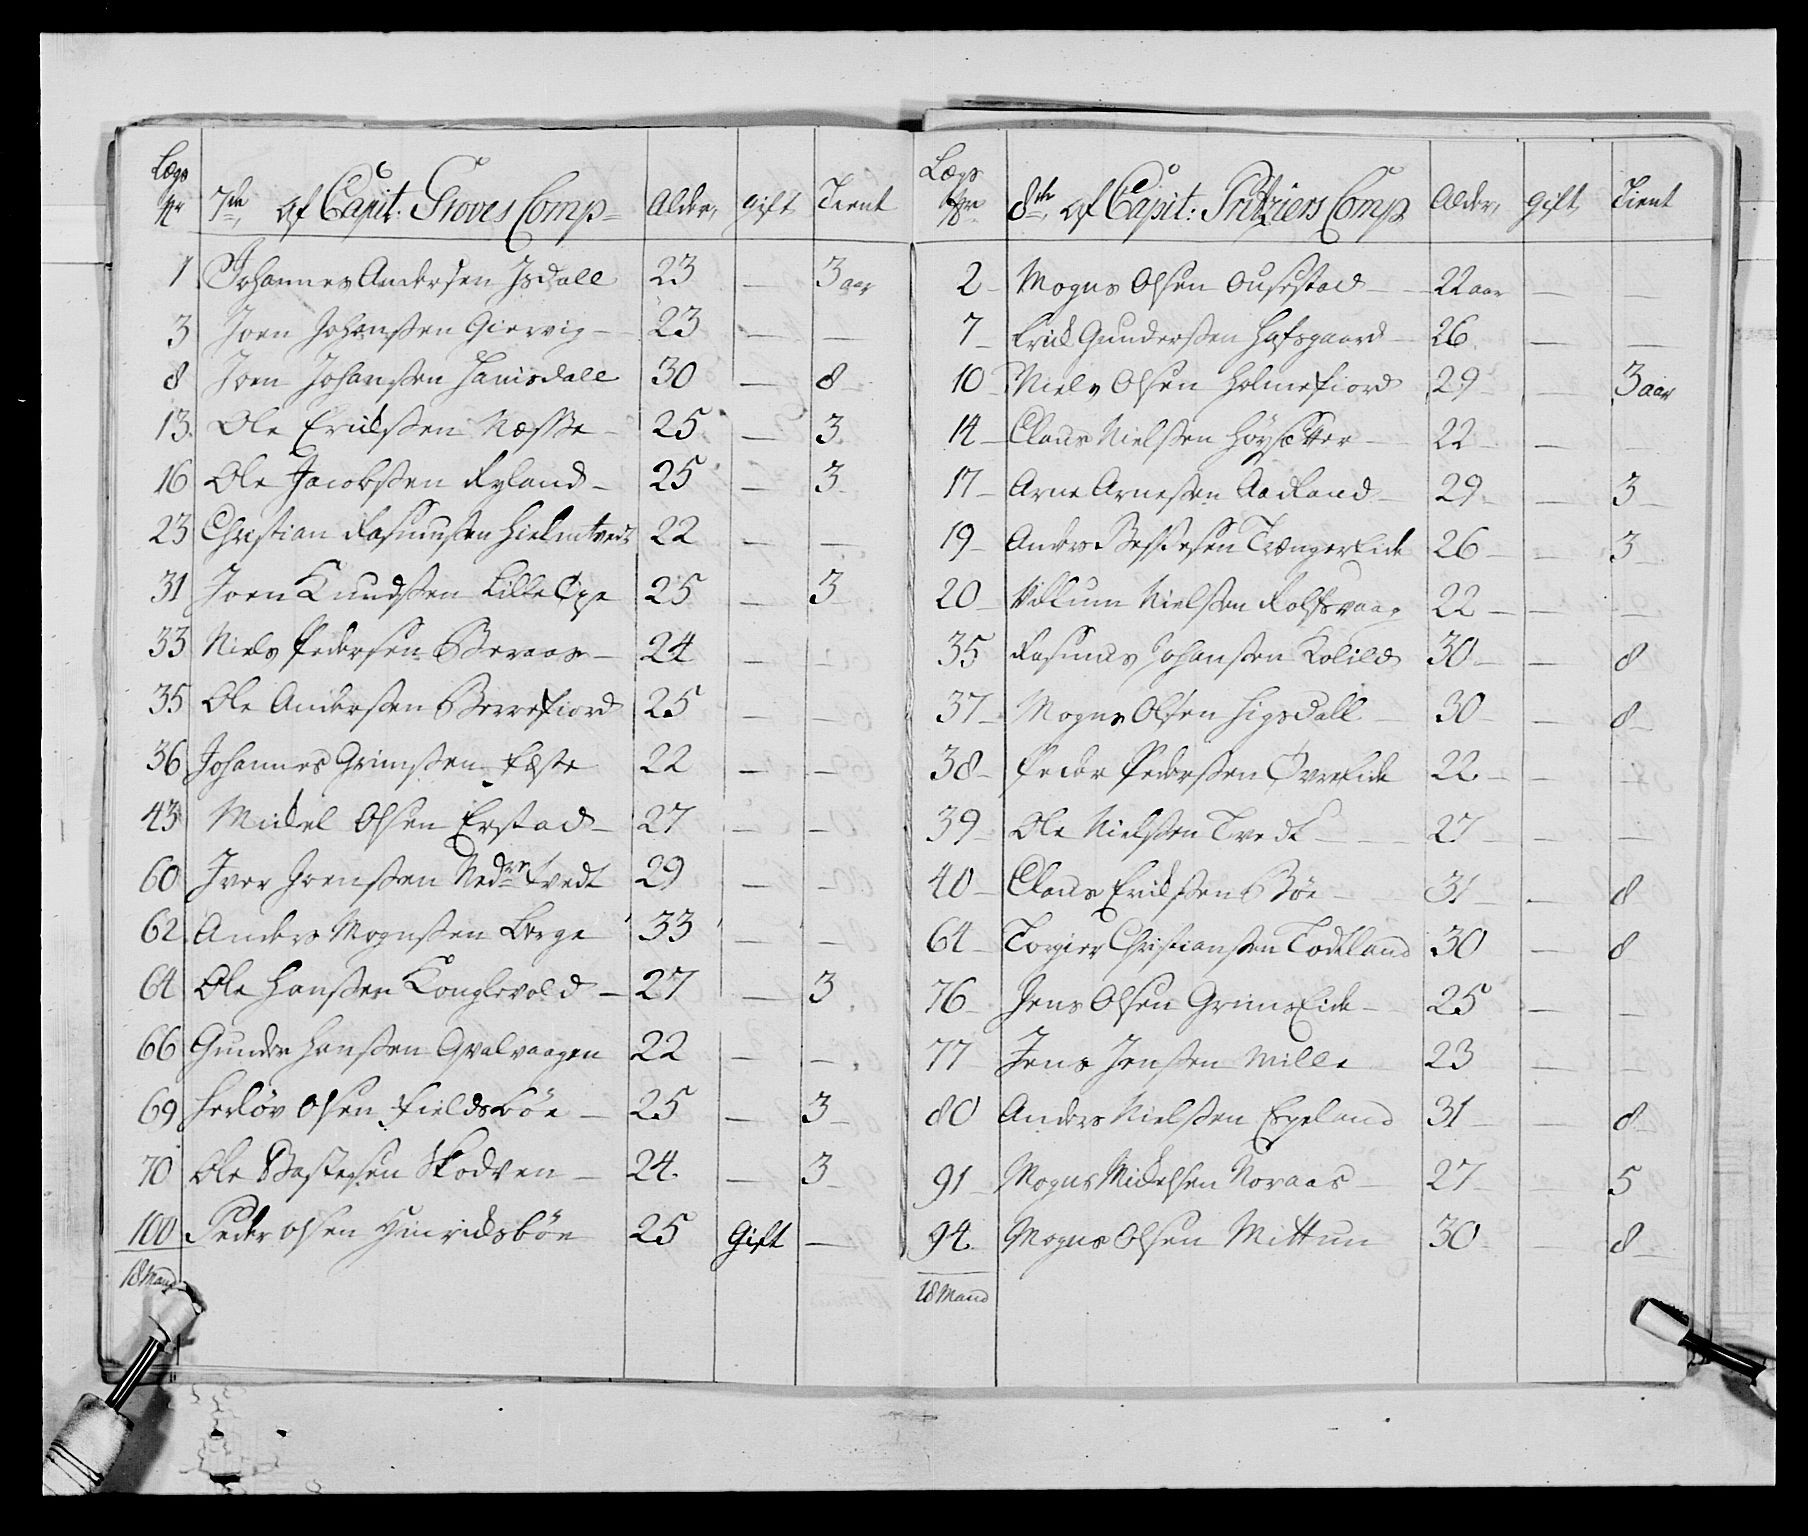 Lægs
Nr 7de af Capit: Groves Comp= Alder, Gift Tient
1 Johannes Andersen Isdall 23 — 3 aar
3 Joen Johanssen Giervig — 23 — —
8 Joen Johanssen Hauisdall 30 — 8
13. Ole Erichssen Næsse — 25 — 3
16 Ole Jacobssen Ryland — 25 — 3
23 Christian Rasmussen Hielmtvedt 22 — —
31 Joen Knudssen Lille 25 — 3
33 Niels Pedersen Beraas — 24 — —
35 Ole Anderssen Berrefiord 25 — —
36 Johannes Grimssen Fæste 22 — —
43 Michel Olsen Erstad — 27 — —
60 Iver Joenssen Nedre Tvedt 29 — —
62 Anders Mognssen Berge 33 — —
64 Ole Hanssen Konglevold — 27 — 3
66 Gunder Hanssen Qvalvaagen 22 — —
69 Herlöv Olsen Fieldsböe — 25 — 3
70 Ole Bastesen Skodven — 24 — 3
100 Peder Olsen Hinrichsböe 25 Gift —
18 Mand
Lægs
Nr 8de af Capit: Fritziers Comp Alder, Gift Tient
2 Mogns Olsen Ousestad — 22 aar — —
7 Erich Gunderssen Hafsgaard 26 — —
10 Niels Olsen Holmefiord 29 — 3 aar
14 Claus Nielssen Höysetter — 22 — —
17 Arne Arnessen Aadland — 29 — 3
19 Anders Trængereide 26 — 3
20 Villum Nielssen Rolfsvaag 22 — —
35 Rasmus Johanssen Kolild 30 — 8
37 Mogns Olsen Higsdall — 30 — 8
38 Peder Pederssen Øvreeide 22 — —
39 Ole Nielssen Tvedt — 27 — —
40 Claus Erichssen Böe — 31 — 8
64 Torgier Christianssen Todtland 30 — 8
76 Jens Olsen Grimseide — 25 — —
77 Jens Jenssen Mille 23 — —
80 Anders Nielssen Espeland 31 — 8
91 Mogns Michelsen Noraas — 27 — 5
94 Mogns Olsen Mittun 30 — 8
18 Mand